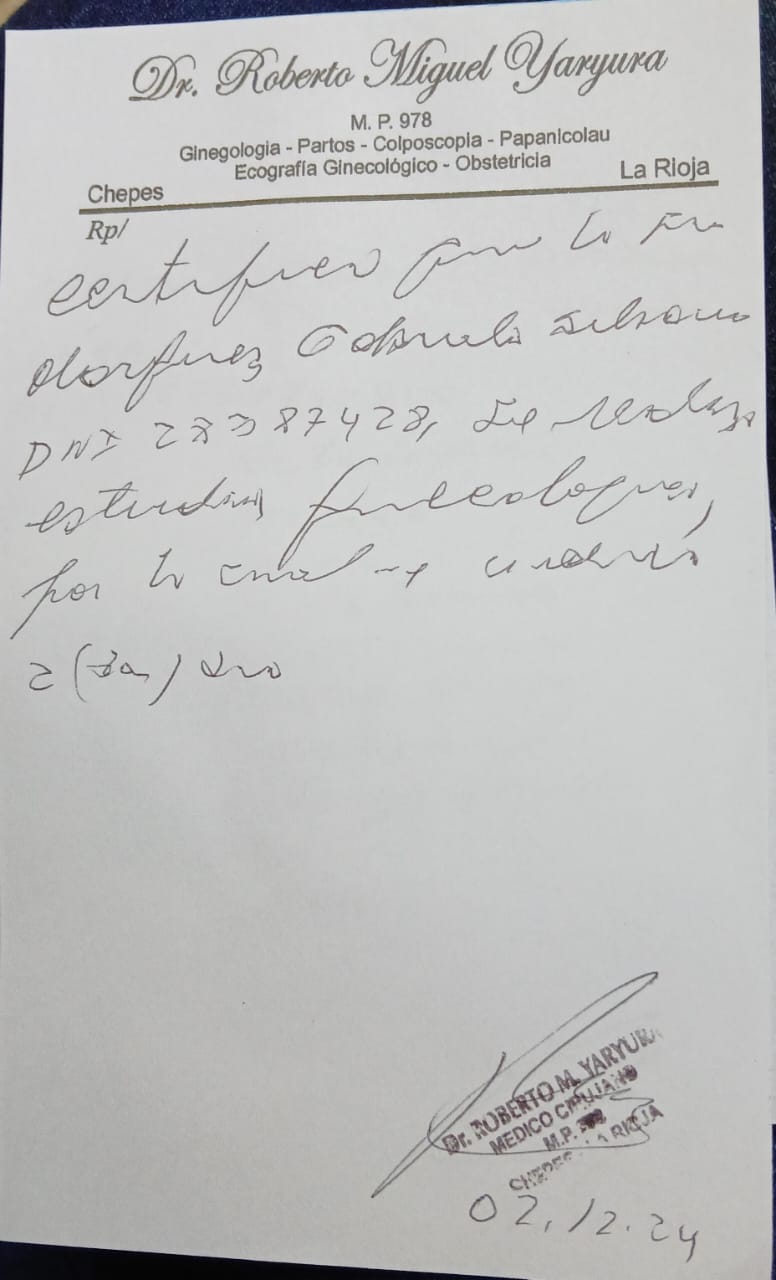 Dr. Roberto Miguel Yaryura
M. P. 978
Ginegologia - Partos - Colposcopia - Papanicolau
Ecografía Ginecológico - Obstetricia
Chepes La Rioja
Rp/
certifico que la
Gabriela
DNI 28387428, se realiza
estudios ginecologicos,
por lo cual
2 (dos) dias
Dr. ROBERTO M. YARYURA
MEDICO CIRUJANO
M.P.
CHEPES LA RIOJA
02.12.24